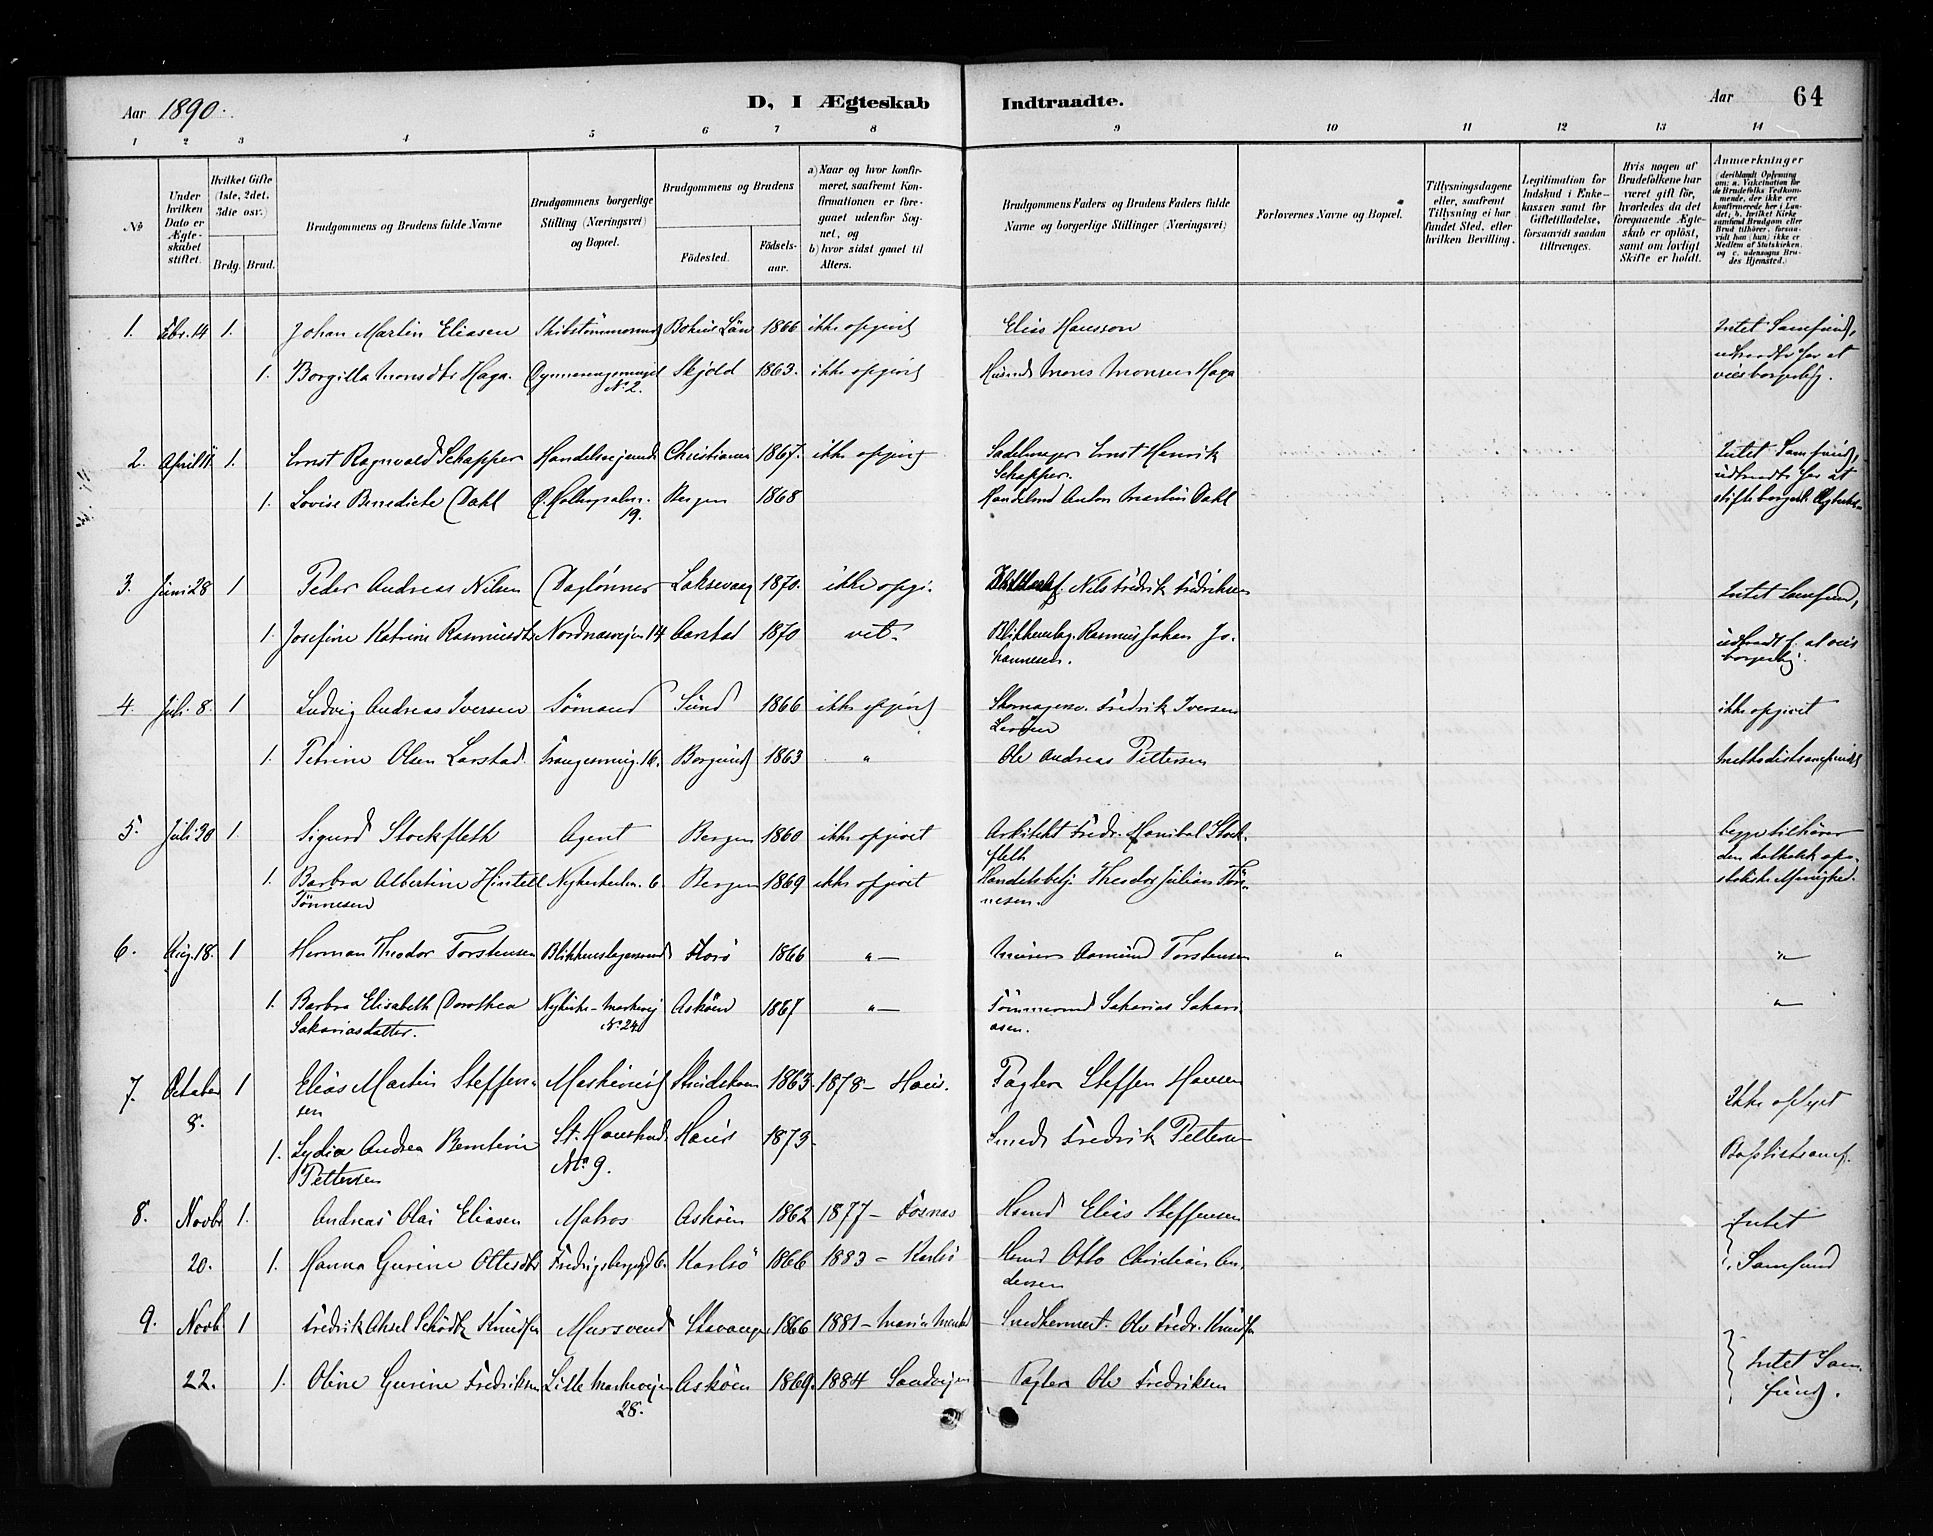 Aar 1890. D, I Ægteskab Indtraadte. Aar 64
1 2 3 4 5 6 7 8 9 10 11 12 13 14
№
Under hvilken Dato er Ægteskabet stiftet.
Hvilket Gifte (1ste, 2det, 3die osv.)
Brdg. Brud.
Brudgommens og Brudens fulde Navne
Brudgommens borgerlige Stilling (Næringsvei) og Bopæl.
Brudgommens og Brudens
Fødested.
Fødselsaar.
a) Naar og hvor konfirmeret, saafremt Konfirmationen er foregaaet udenfor Sognet, og
b) hvor sidst gaaet til Alters.
Brudgommens Faders og Brudens Faders fulde Navne og borgerlige Stillinger (Næringsvei)
Forlovernes Navne og Bopæl.
Tillysningsdagene eller, saafremt Tillysning ei har fundet Sted, efter hvilken Bevilling.
Legitimation for Indskud i Enkekassen samt for Giftetilladelse, forsaavidt saadan tiltrænges.
Hvis nogen af Brudefolkene har været gift før, hvorledes da det foregaaende Ægteskab er opløst, samt om lovligt Skifte er holdt.
Anmærkninger
(deriblandt Oplysning om: a. Vakcination for de Brudefolks Vedkommende, der ikke ere konfirmerede her i Landet; b. hvilket Kirkesamfund Brudgom eller Brud tilhører, forsaavidt han (hun) ikke er Medlem af Statskirken, og c. udensogns Brudes Hjemsted.)
1. Febr. 14 1. Johan Martin Eliasen Skibstømmermd Bohus Län 1866 ikke opgivet Elias Hansson Intet Samfund, udtraadte for at vies borgerlig.
1. Borgilla Monsdtr Haga. № 2. Skjold 1863. ikke opgivet Husmd Mons Monsen Haga
2. April 11. 1. Ernst Ragnvald Schapper Handelsrejsende Christiania 1867. ikke opgivet Sadelmager Ernst Henrik Schapper. Intet Samfund, udtraadte for at
1. Lovise Benedicte Dahl 19. Bergen 1868 Handelsmd Anton Martin Dahl
3. Juni 28 1 Peder Andreas Nilsen Daglønner Laksevaag 1870. ikke opgi- Nils Fredrik Fredriksen Intet Samfund,
1. Josefine Katrine Rasmusdtr Nordnæsvejen 14 Aarstad 1870 vet. Blikkenslag. Rasmus Johan Johannesen. udtraadt f. at vies borgerlig.
4. Juli 8. 1 Ludvig Andreas Iversen Sømand Sund 1866 ikke opgivet Skomagersv. Fredrik Iversen Lerøen ikke opgivet
1. Petrine Olsen Larstad. 16. Borgund 1863 " Ole Andreas Pettersen Methodistsamfundet
5. Juli 30 1. Sigurd Stockfleth Agent Bergen 1860 ikke opgivet Arkitekt Fredr. Hanibal Stockfleth begge tilhører den katholsk apostoliske Menighed.
1. Barbra Albertine Hintell Tønnesen Nykirkealm. 6. Bergen 1869 ikke opgivet Handelsbetj. Theodor Julian Tønnesen.
6. Aug. 18. 1 Herman Theodor Torstensen Blikkenslagersvend Florø 1866 "— Murer Aamund Torstensen " "—
1. Barbra Elisabeth Dorothea Sakariasdatter. Nykirke-Markevej № 24 Askøen 1867 "— Tømmermd Sakarias Sakariasen. "—
7. October 8. 1 Elias Martin Steffensen Maskinist 1863. 1878 – Haus. Fagler Steffen Hansen Ikke oplyst
1. Lydia Andrea Berntine Pettersen № 9. Haus 1873. Smed Fredrik Petterse— Baptistsamf.
8. Novb 20. 1. Andreas Olai Eliasen Matros Askøen 1862 1877 – Fosnæs Husmd Elias Steffensen Intet Samfund
1. Hanna Gurine Ottesdtr 6. Karlsø 1866 1883 – Karlsø Husmd Otto Christian Andersen
9. Novb 22. 1 Fredrik Aksel Schødtz Knudsen Mursvend Stavanger 1866 1881 – Ole Fredr. Knudsen Intet Samfund.
1. Oline Gurine Fredriksen Lille Markevejen 28. Askøen 1869. 1884 Sandvigen Ole Fredriksen